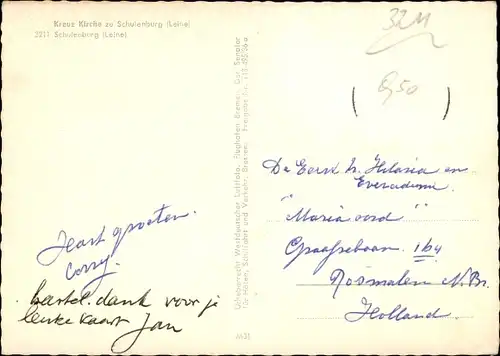 Kreuz Kirche zu Schulenburg (Leine)
3211 Schulenburg (Leine)
3211
9,50
Urheberrecht: Westdeutscher Luftfoto, Flughafen Bremen.
für Häfen, Schiffahrt und Verkehr, Bremen. Freigabe Nr.
De Eerw. Hilaria en
"Maria oord"
Graafsebaan 164
Rosmalen N.Br.
Holland.
Hart. groeten.
Corry.
hartel. dank voor je
leuke kaart Jan